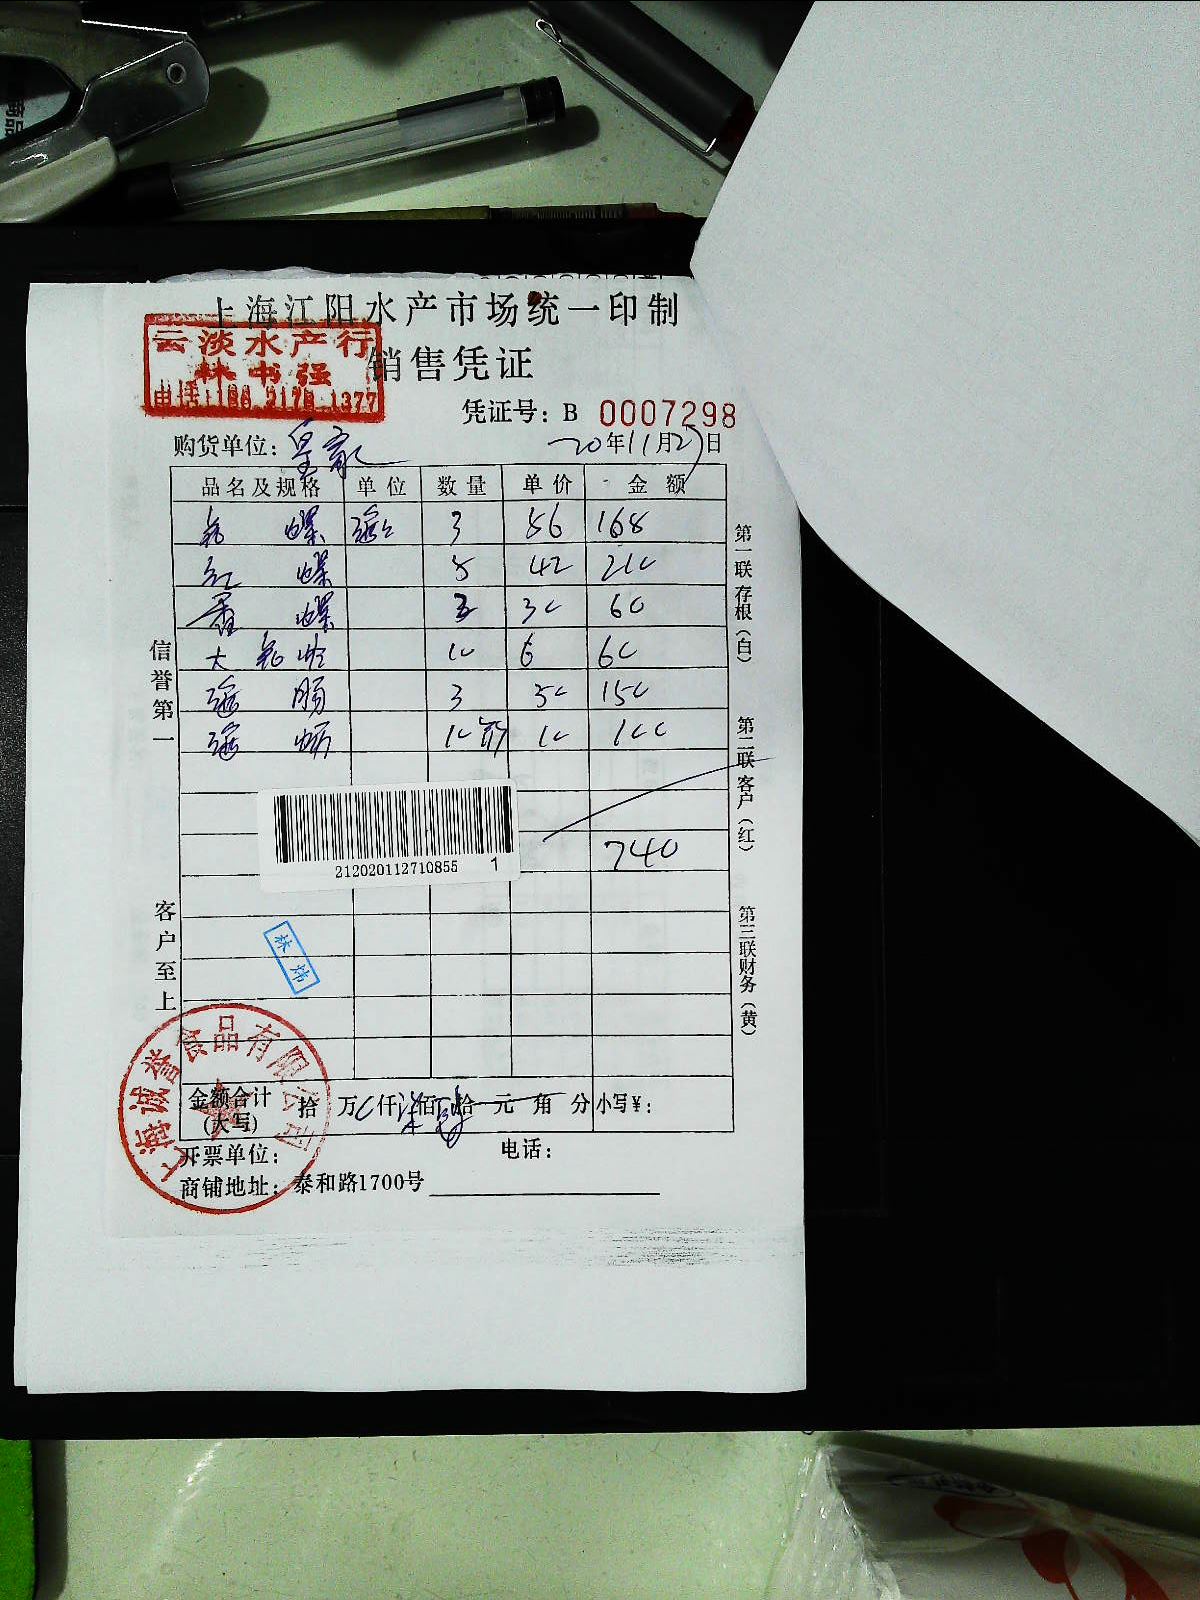 上海江阳水产市场统一印制
云淡水产行
林书强
销售凭证
凭证号: B 0007298
购货单位: 皇家 20年11月27日
品名及规格 单位 数量 单价 金额
螺 3 56 168
红 螺 5 42 210
螺 30 60
大 10 6 60
肠 3 50 150
10 10 100
740
信誉第一
客户至上
第一联存根(白)
第二联客户(红)
第三联财务(黄)
212020112710855 1
林炜
上海诚誉食品有限公司
金额合计(大写) 拾 万 仟 佰 拾 元 角 分 小写¥:
开票单位: 电话:
商铺地址: 泰和路1700号